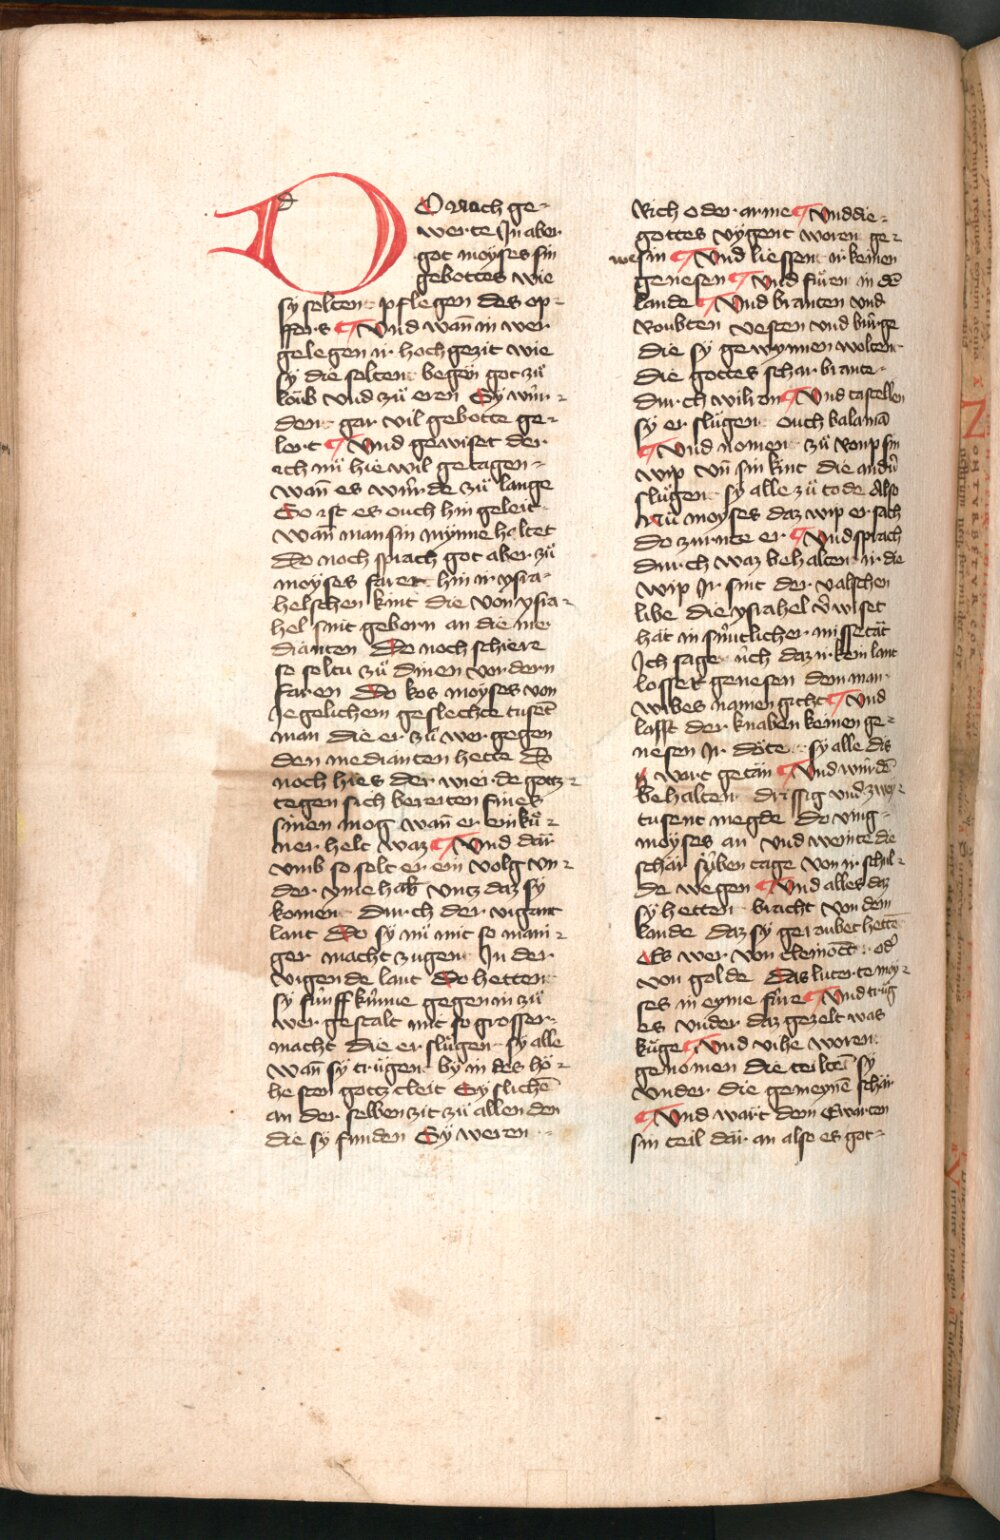 DOarnoch ge-
werte In aber
got moÿses sin
gebottes wie
sÿ solten pflegen des op-
ffers Vnd wan̄ in wer
gelegen ir hochgezit wie
sÿ die solten begen got zů
loub vnd zů eren Sÿ wur-
den gar vil gebotte ge-
lert Vnd gewiset der
ich nů hie wil getagen
wan̄ es wurde zů lange
So ist es ouch hin geleit
wan̄ man sin nÿnne haltet
Do noch sprach got aber zů
moÿses farent hin ir ysra-
helschen kint die von ysra-
hel sint geborn an die me-
dianten Do noch schiere
so soltu zů dinen vordern
faren Do kos moyses von
Jegelichem geslechte tusēt
man die er zů wer gegen
den medianten hette Do
noch hies der wierde gottz
tegen sich bereiten finees
sinen mog wan̄ er ein kü-
ner helt waz Vnd dar
vmb so solt er ein volg vn-
der yme hab vntz daz sÿ
komen durch der vigant
lant Do sÿ nů mit so mani-
ger macht zugen In der
vigende lant Do hetten
sÿ fünff künne gegen in zů
wer gestalt mit so grosser
macht die er slůgen sÿ alle
wan̄ sÿ trůgen bÿ in des hö-
hesten gottz cleit Sÿ slichē
an der selben zit zů allen den
die sÿ funden Sÿ weren
Rich oder arme Vnd die
gottes vÿgent woren ge-
wesin Vnd liessen ir keinen
genesen Vnd fůren in dē
lande Vnd branten vnd
Roubten vesten vnd bürge
die sÿ gewynnen wolten
die gottes schar brante
durch wih en Vnd castellen
sÿ er slůgen ouch balamā
Vnd nomen zů Roup sin
wip vn̄ sin kint die andn̄
slůgen sÿ alle zů tode Also
Nů moyses daz wip er sach
do zurnte er Vnd sprach
durch waz behalten ir die
wip Ir sint der valschen
libe die ysrahel v̄wiset
hät in süntlicher missetät
Ich sage üch daz ir kein lant
lossent genesen dem man
wibes namen gicht Vnd
lasst der knaben keinen ge-
nesen Ir döte sÿ alle dis
wart getän Vnd wurdē
behalten drissig vnd zwey
tusent megde Do ving
moÿses an vnd weinte die
schar süben tage von ir schul-
de wegen Vnd alles daz
sÿ hetten bracht von dem
lande daz sÿ geroubet hettē
Es wer von cleinöte od̄
von golde Das luterte moy-
ses in eyme füre Vnd trůg
es vnder daz gezelt was
kůge Vnd vihe woren
genomen die teiltē sÿ
vnder die gemeynē schar
Vnd wart dem Ewarten
sin teil där an also es got-